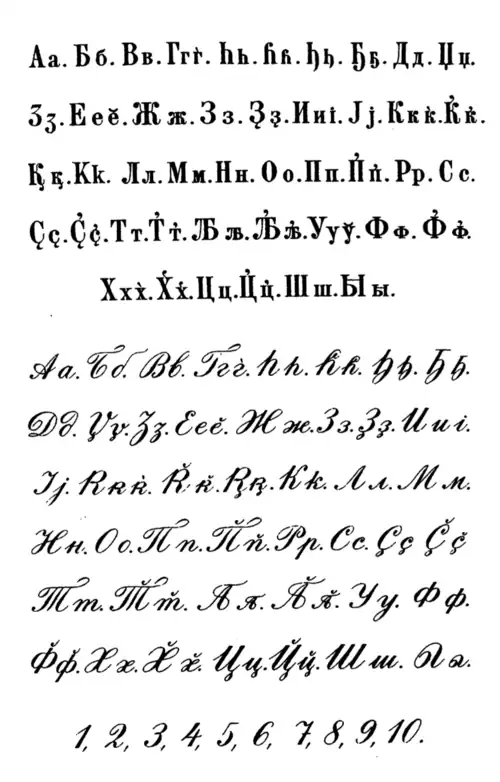 Аа. Бб. Вв. Ггг̇. Һһ. Ɦɦ. Ꜧꜧ. Ҕҕ. Дд. Џџ.
Ӡӡ. Ееĕ. Жж. Зз. З̨з̨. Ииі. Јј. Ккк̇. К̇к̇.
Ққ. Kk. Лл. Мм. Нн. Оо. Пп. П̇п̇. Рр. Сс.
Çç. Ç̇ç̇. Тт. Т̇т̇. Љљ. Љ̇љ̇. Ууў. Фф. Ф̇ф̇.
Ххх̇. Х̇х̇. Цц. Ц̇ц̇. Шш. Ыы.
Аа. Бб. Вв. Ггг̇. Һһ. Ɦɦ. Ꜧꜧ. Ҕҕ.
Дд. Џџ. Ӡӡ. Ееĕ. Жж. Зз. З̨з̨. Ииі.
Јј. Ккк̇. К̇к̇. Ққ. Kk. Лл. Мм.
Нн. Оо. Пп. П̇п̇. Рр. Сс. Çç Ç̇ç̇
Тт. Т̇т̇. Љљ. Љ̇љ̇. Уу. Фф.
Ф̇ф̇. Хх. Х̇х̇. Цц. Ц̇ц̇. Шш.
1, 2, 3, 4, 5, 6, 7, 8, 9, 10.